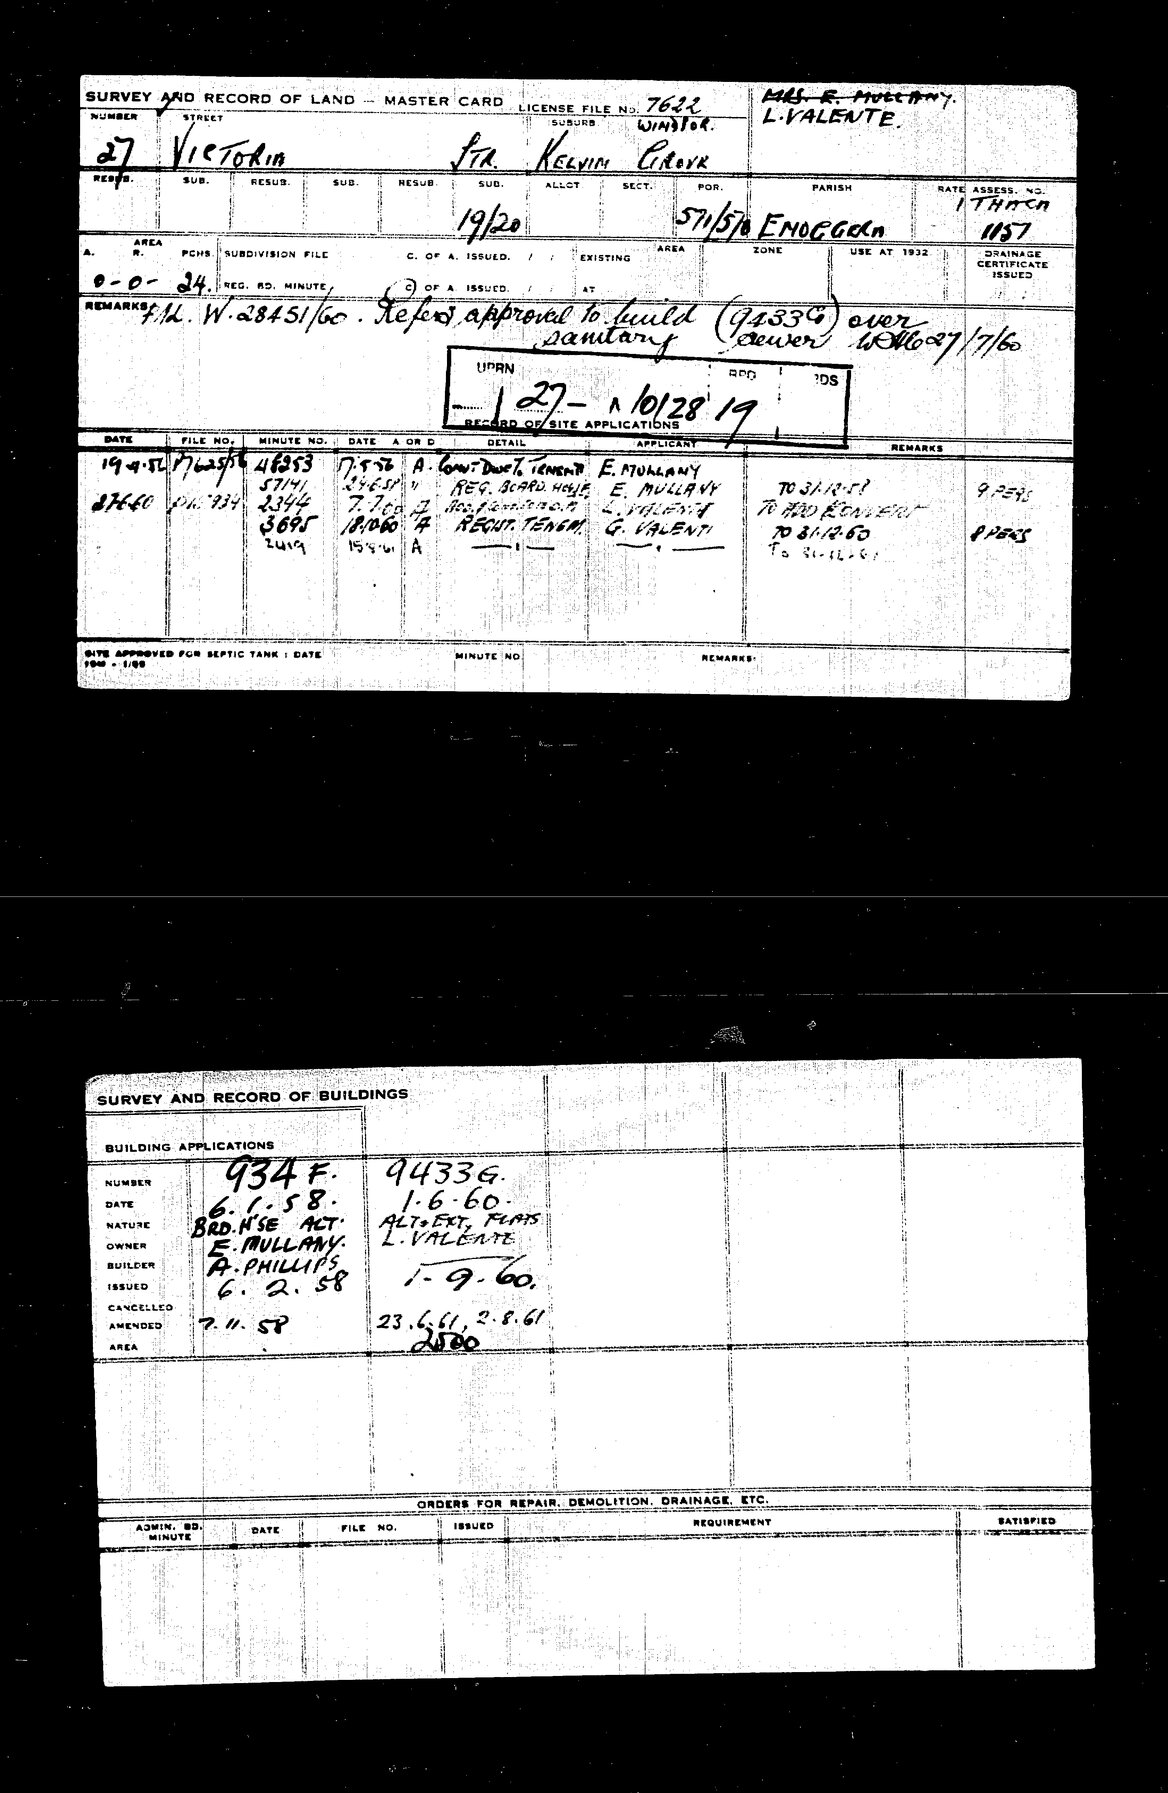 SURVEY AND RECORD OF LAND – MASTER CARD LICENSE FILE No. 7622
MRS. E. MULLANY.
L. VALENTE.
NUMBER STREET SUBURB WINDSOR.
27 VICTORIA STR. KELVIN GROVE
RESUB. SUB. RESUB. SUB. RESUB. SUB. ALLOT SECT. POR. PARISH RATE ASSESS. NO.
ITHACA
19/20 571/5/8 ENOGGERA 1157
AREA
A. R. PCHS. SUBDIVISION FILE C. OF A. ISSUED. / / EXISTING AREA ZONE USE AT 1932 DRAINAGE CERTIFICATE ISSUED
0-0-24. REG. BD. MINUTE, C OF A. ISSUED. / / AT
REMARKS W.28451/60. Refers approval to build (9433G) over
sanitary sewer 27/7/60
UPRN RPD
27 – 10128 19
RECORD OF SITE APPLICATIONS
DATE FILE NO. MINUTE NO. DATE A OR D DETAIL APPLICANT REMARKS
48253 17.5.56 A. E. MULLANY
57141 24.6.58 " REG. BOARD. HOUSE E. MULLANY TO 31.12.58 9 PERS
2344 7.7.60 A L. VALENTE TO ADD & CONVERT
3695 18.10.60 A REGIST. TENEM. G. VALENTI TO 31.12.60 8 PERS
2419 15.8.61 A — " — — " — To 31.12.61
SITE APPROVED FOR SEPTIC TANK : DATE MINUTE NO. REMARKS:
SURVEY AND RECORD OF BUILDINGS
BUILDING APPLICATIONS
NUMBER 934 F. 9433G.
DATE 6.1.58. 1.6.60.
NATURE BRD. H'SE ALT. ALT & EXT, FLATS
OWNER E. MULLANY. L. VALENTE
BUILDER A. PHILLIPS —
ISSUED 6. 2. 58 1-9-60.
CANCELLED
AMENDED 7.11.58 23.6.61, 2.8.61
AREA 2500
ORDERS FOR REPAIR, DEMOLITION, DRAINAGE, ETC.
ADMIN. BD. MINUTE DATE FILE NO. ISSUED REQUIREMENT SATISFIED